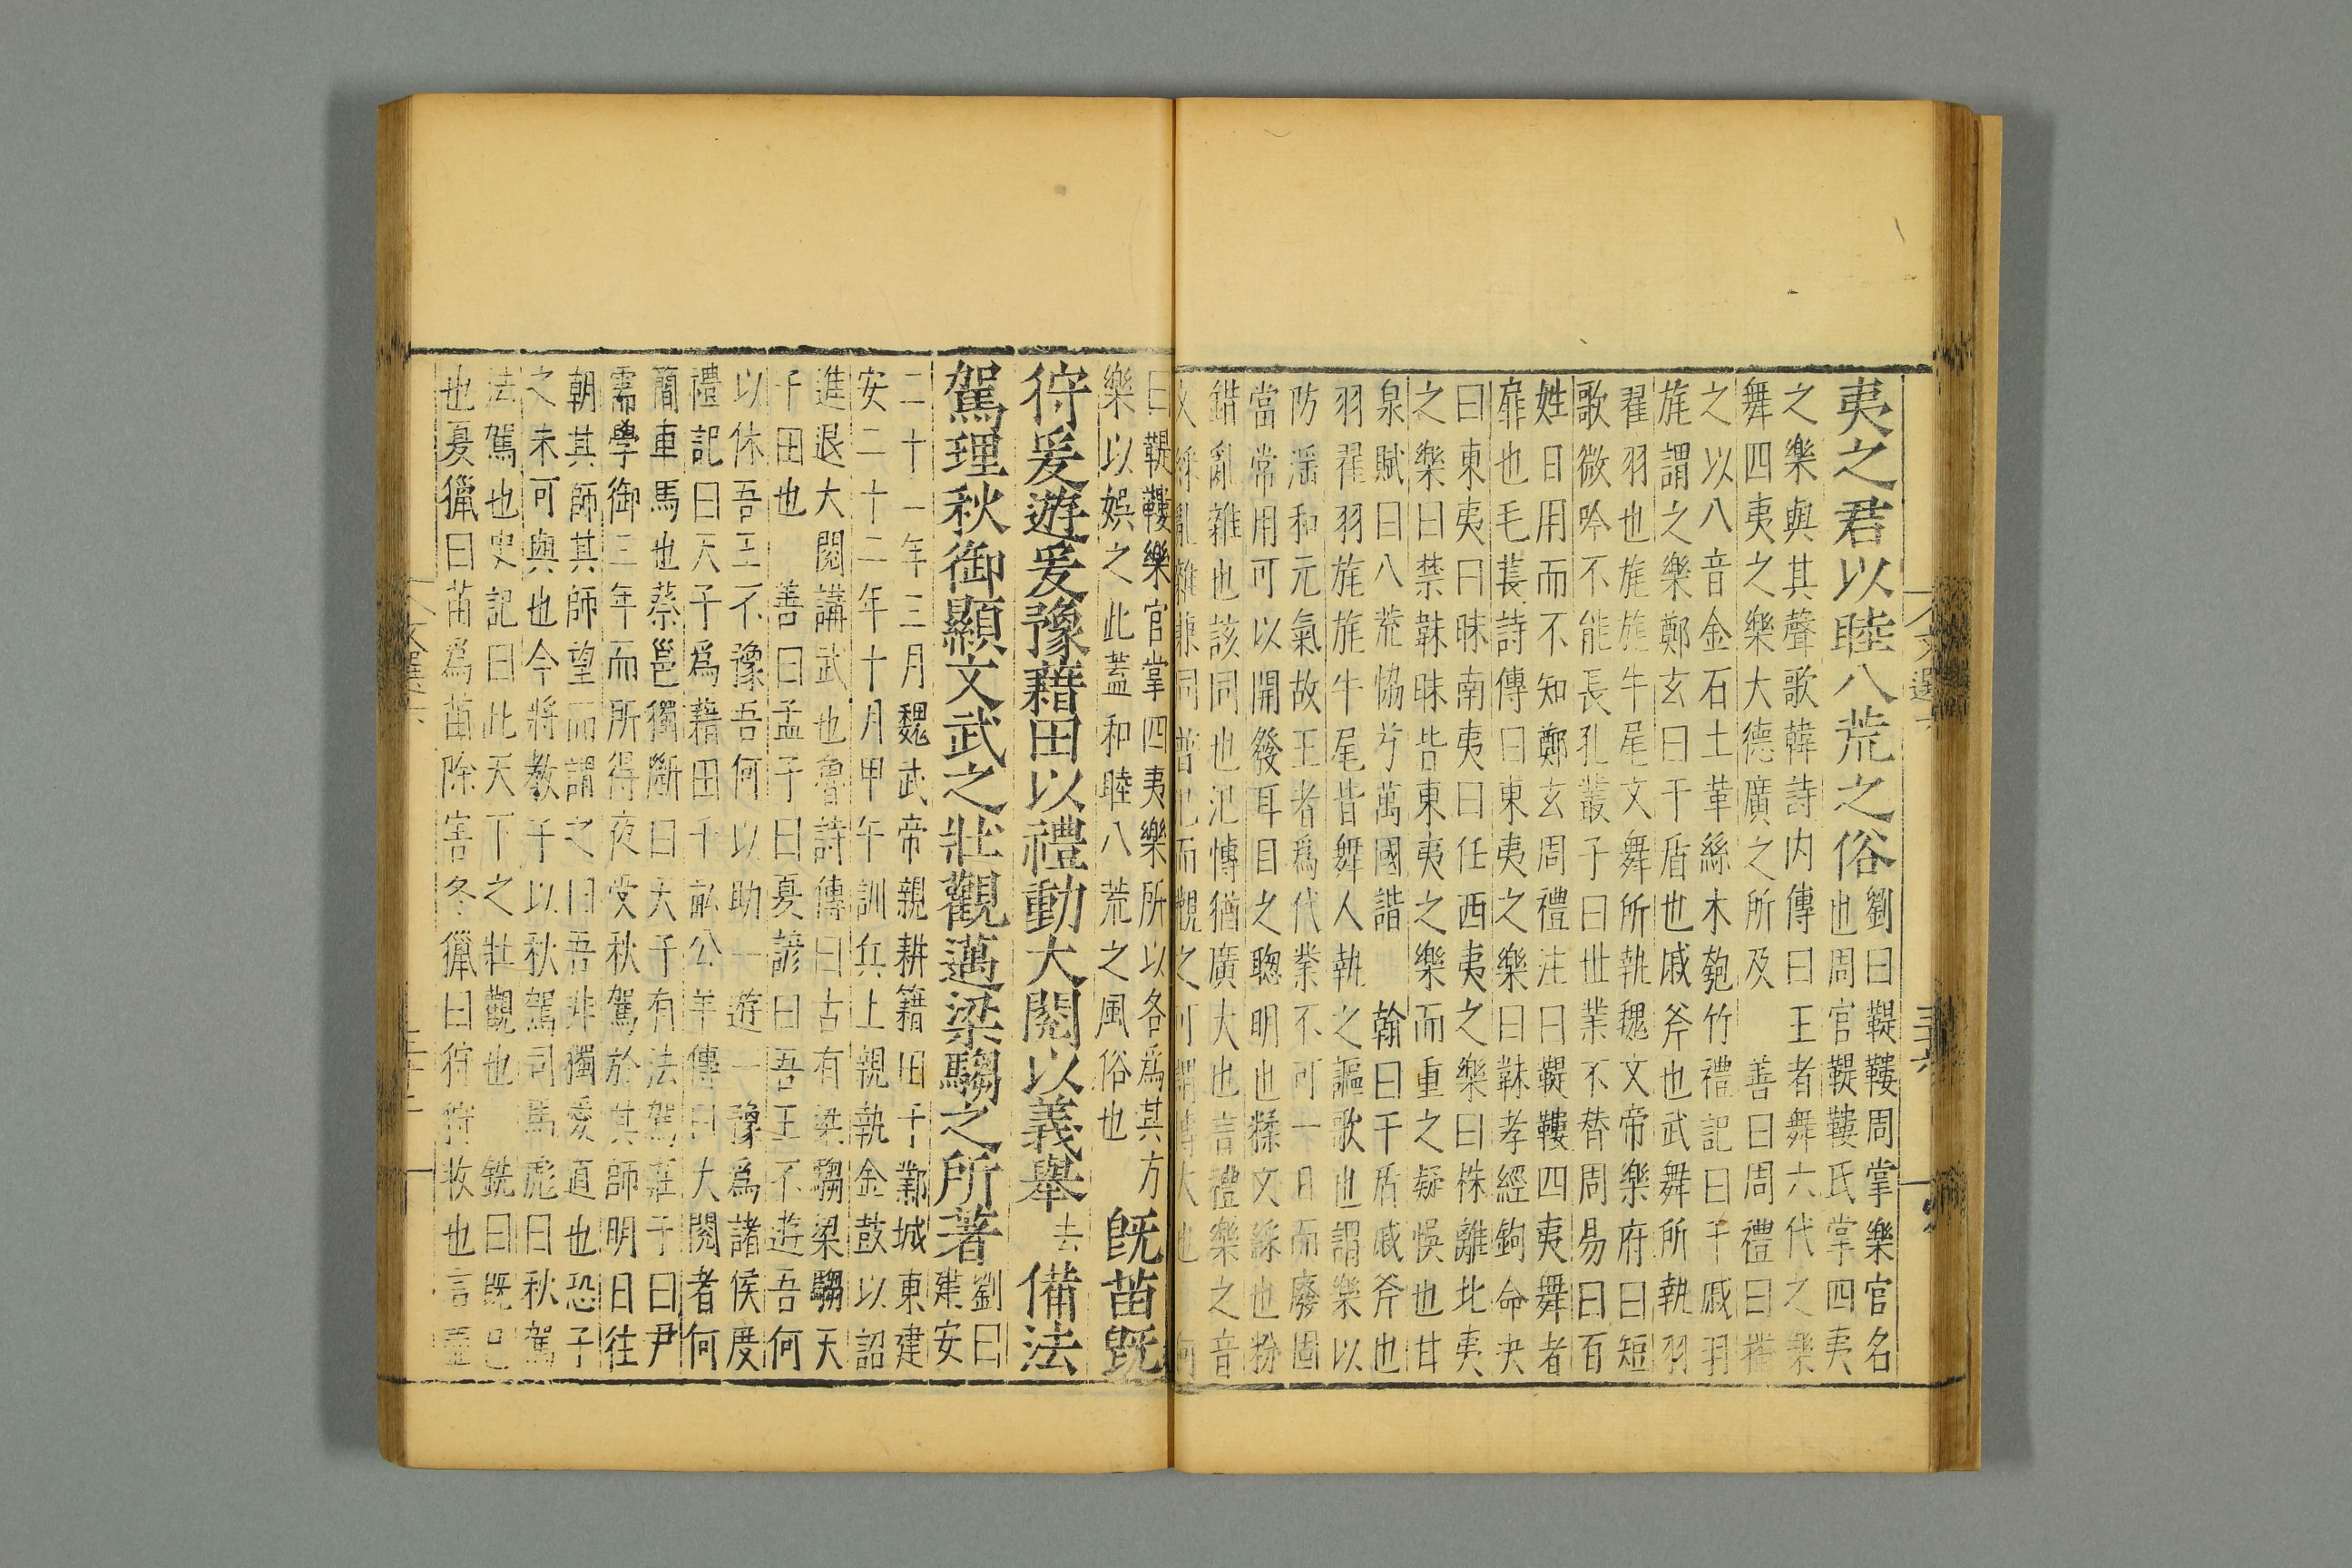 夷之君以睦八荒之俗
劉曰鞮鞻周掌樂官名
也周官鞮鞻氏掌四夷
之樂與其聲歌韓詩内傳曰王者舞六代之樂
舞四夷之樂大德廣之所及 善曰周禮曰
之以八音金石土革絲木匏竹禮記曰干戚羽
旄謂之樂鄭玄曰干盾也戚斧也武舞所執羽
翟羽也旄旄牛尾文舞所執魏文帝樂府曰短
歌微吟不能長孔叢子曰世業不替周易曰百
姓日用而不知鄭玄周禮注曰鞮鞻四夷舞者
扉也毛萇詩傳曰東夷之樂曰韎孝經鉤命決
曰東夷曰昧南夷曰任西夷之樂曰株離北夷
之樂曰禁韎昧皆東夷之樂而重之疑悞也甘
泉賦曰八荒恊兮萬國諧 翰曰干盾戚斧也
羽翟羽旄旄牛尾皆舞人執之謳歌也謂樂以
防滛和元氣故王者爲代業不可一日而廢固
當常用可以開發耳目之聦明也糅文綵也紛
錯亂雜也該同也氾愽猶廣大也言禮樂之音
文綵亂雜兼同普氾而觀之可謂愽大也
曰鞮鞻樂官掌四夷樂所以各爲其方
樂以娛之此蓋和睦八荒之風俗也
旣苗旣
狩爰遊爰豫藉田以禮動大閱以義舉去備法
駕理秋御顯文武之壯觀邁梁騶之所著
劉曰
建安
二十一年三月魏武帝親耕籍田于鄴城東建
安二十二年十月甲午訓兵上親執金鼓以詔
進退大閱講武也魯詩傳曰古有梁騶梁騶天
子田也 善曰孟子曰夏諺曰吾王不遊吾何
以休吾王不豫吾何以助一遊一豫爲諸侯度
禮記曰天子爲藉田千畝公羊傳曰大閱者何
簡車馬也蔡邕獨斷曰天子有法駕莊子曰尹
需學御三年而所得夜受秋駕於其師明日往
朝其師其師望而謂之曰吾非獨愛道也恐子
之未可與也今將教子以秋駕司馬彪曰秋駕
法駕也史記曰此天下之壯觀也 銑曰旣已
也夏獵曰苗爲苗除害冬獵曰狩狩收也言